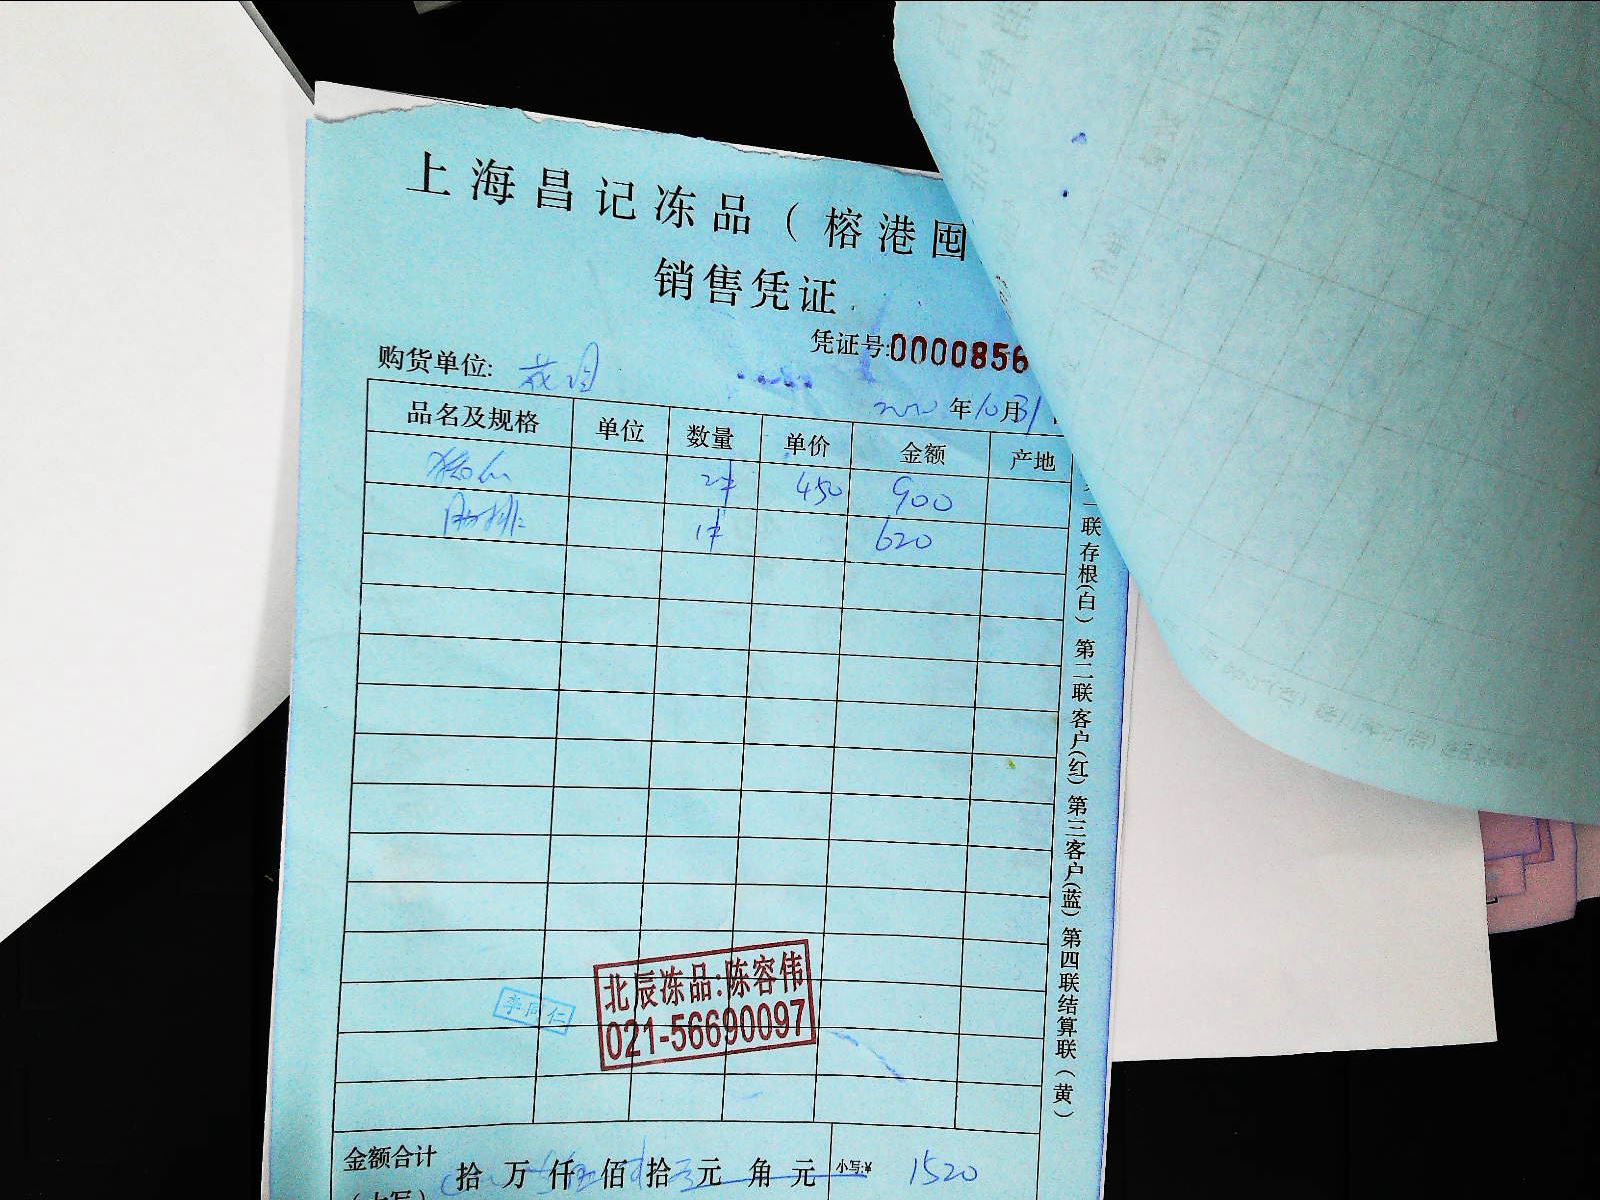 上海昌记冻品（榕港囤
销售凭证
凭证号:0000856
购货单位: 花月
2020年10月31
品名及规格 单位 数量 单价 金额 产地
2件 450 900
肋排 1件 620
联存根(白) 第二联客户(红) 第三客户(蓝) 第四联结算联(黄)
北辰冻品:陈容伟
021-56690097
李同仁
金额合计 拾万仟佰拾元角元 小写:¥ 1520